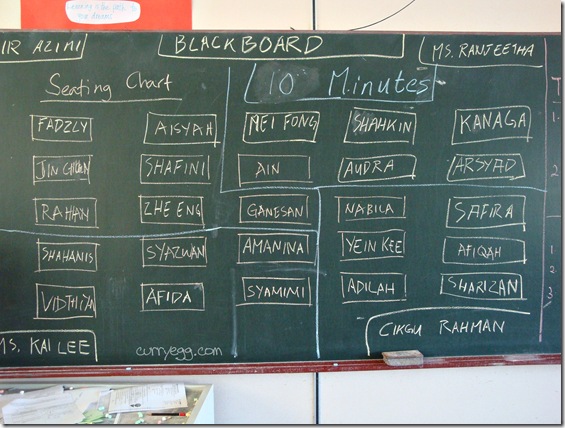 Learning is the path to
our dreams.
IR AZIMI
BLACKBOARD
MS. RANJEETHA
Seating Chart
10 Minutes
FADZLY AISYAH MEI FONG SHAHKIN KANAGA
SHAFINI AIN AUDRA ARSYAD
ZHE ENG GANESAN NABILA SAFIRA
SHAHANIS SYAZWAN AMANINA YEIN KEE AFIQAH
VIDTHIYA AFIDA SYAMIMI ADILAH SHARIZAN
MS. KAI LEE
CIKGU RAHMAN
curryegg.com
T
1.
2
1
2
3